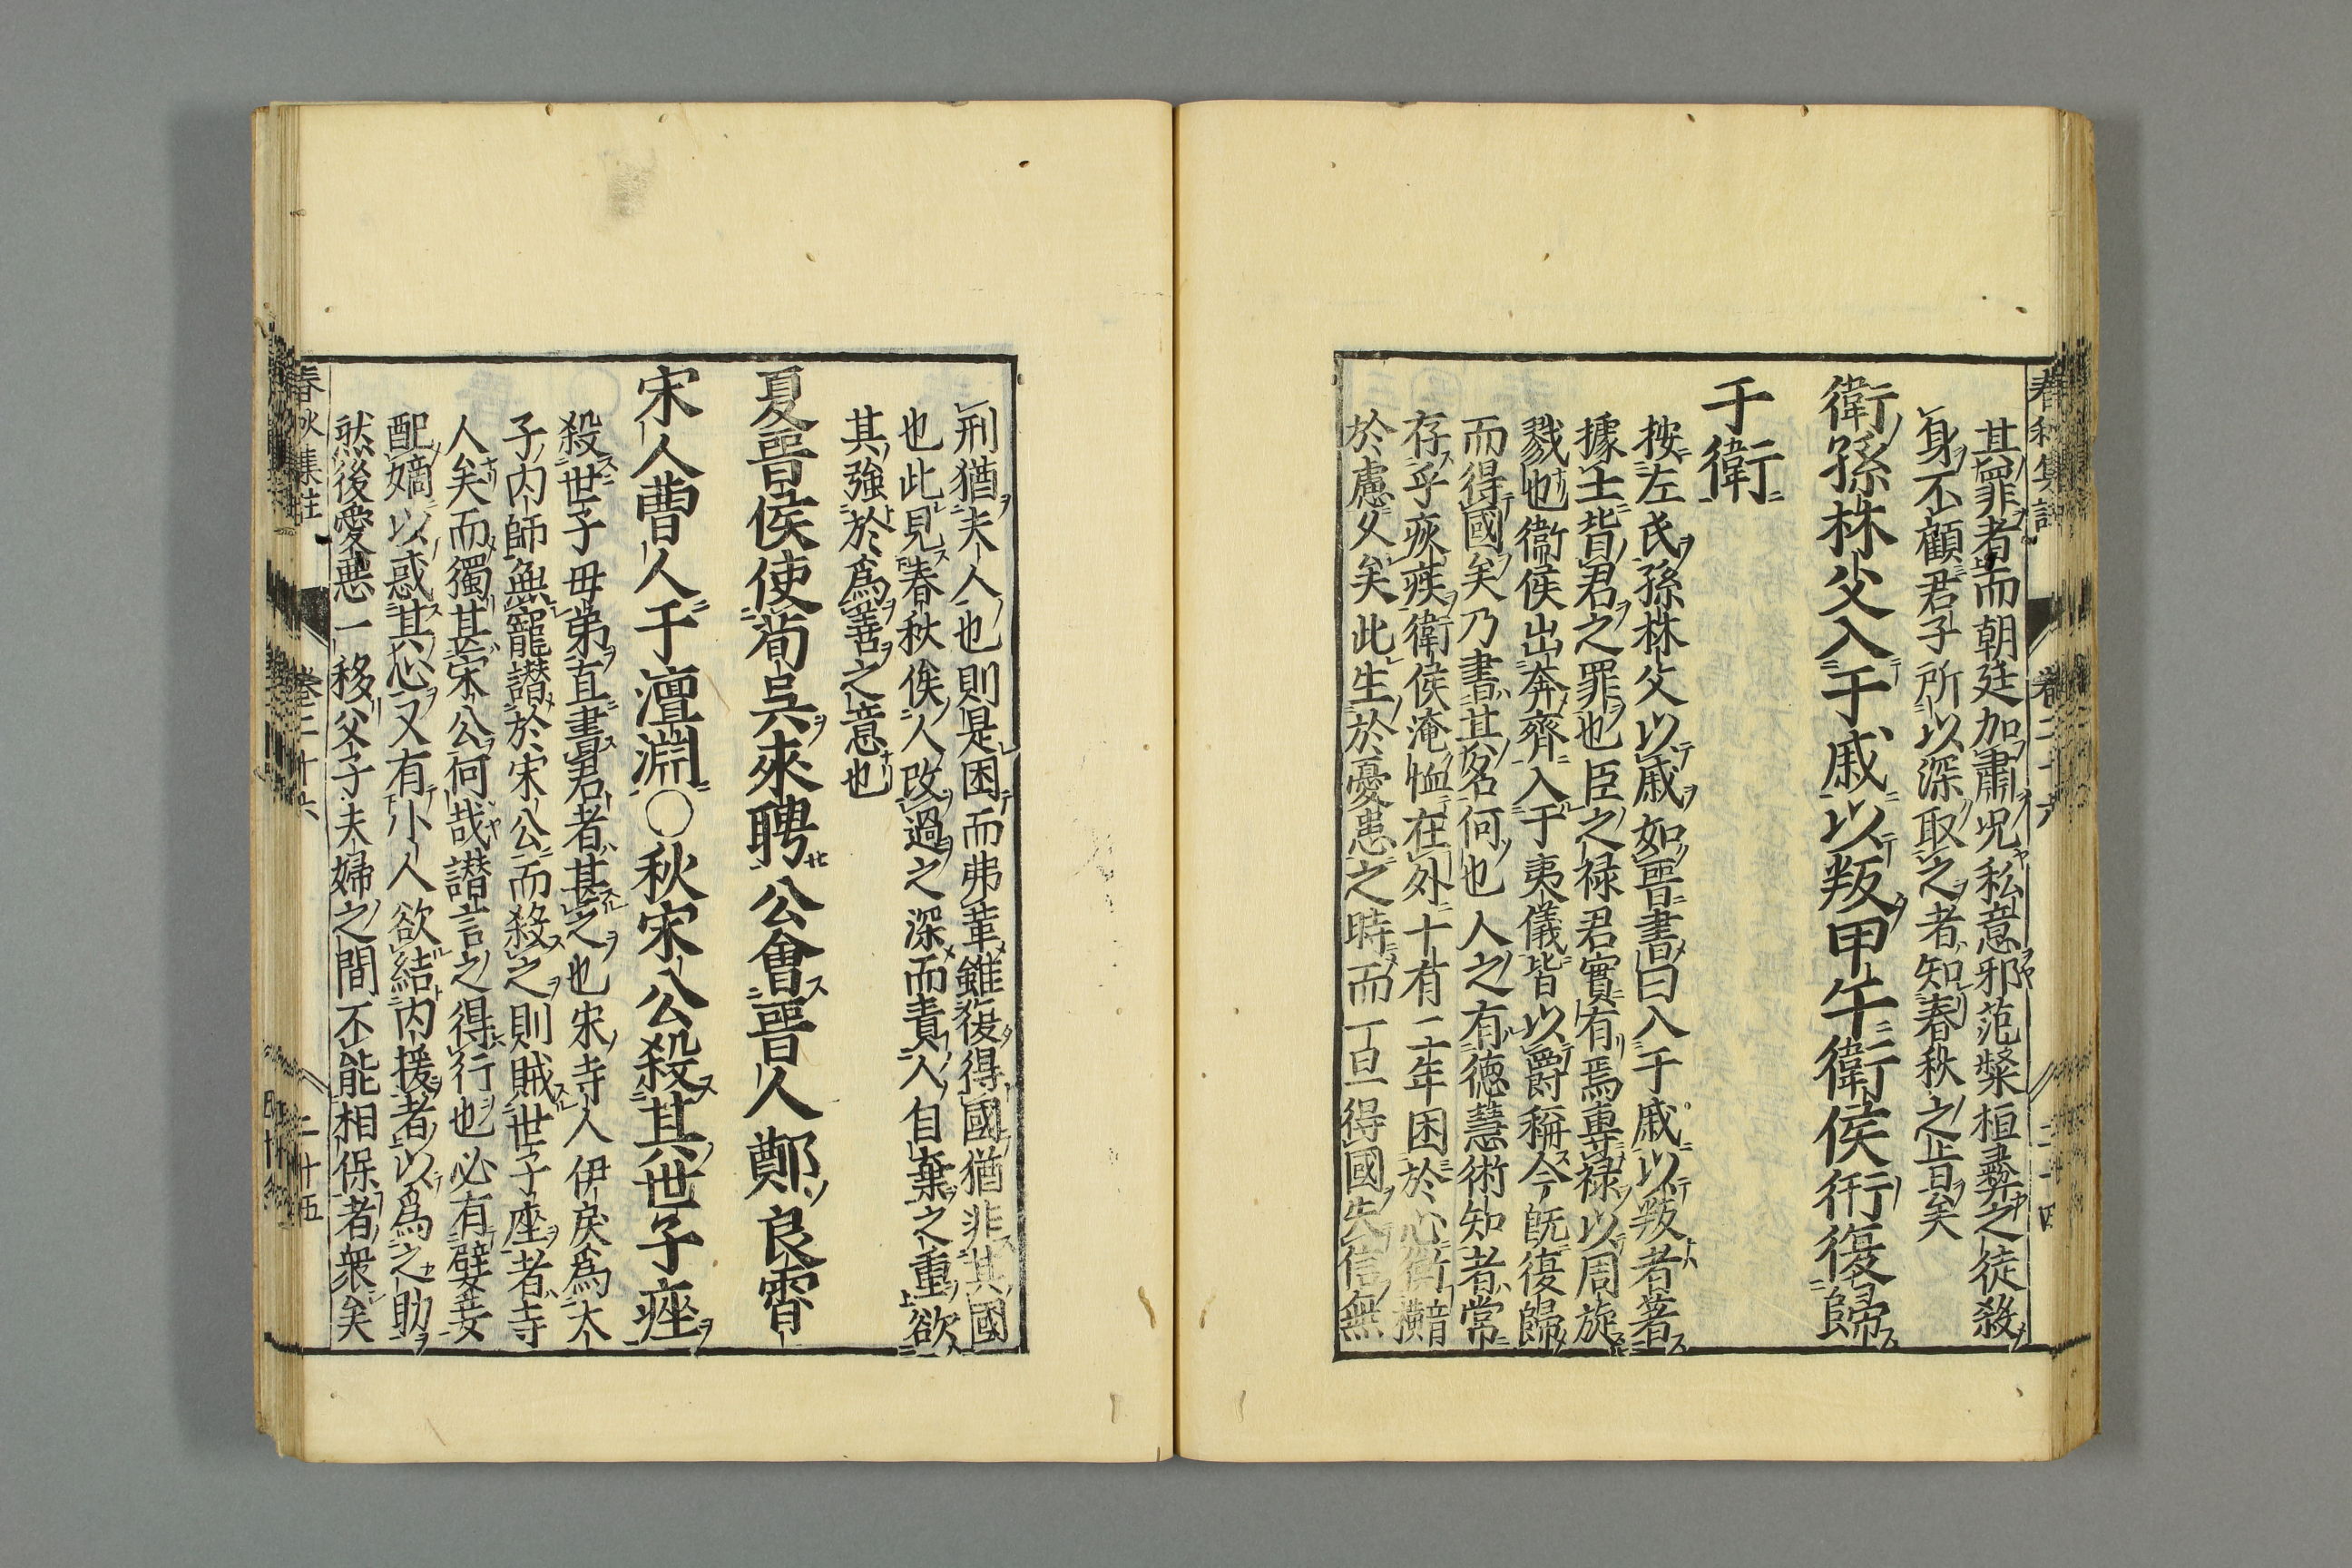 其罪者而朝廷加肅况私意邪范粲桓彝之徒殺
身不顧君子所以深取之者知春秋之旨矣
衛孫林父入于戚以叛甲午衛侯衎復歸
于衛
按左氏孫林父以戚如晉書曰入于戚以叛者著
據土背君之罪也臣之禄君實有焉專禄以周旋
戮也衞侯出奔齊入于夷儀皆以爵稱今既復歸
而得國矣乃書其名何也人之有徳慧術知者常
存乎疢疾衛侯淹恤在外十有二年困於心衡
於慮久矣此生於憂患之時而一旦得國失信無
刑猶夫人也則是困而弗革雖復得國猶非其國
也此見春秋俟人改過之深而責人自棄之重欲
其強於為善之意也
夏晉侯使荀吳來聘公會晉人鄭良霄
宋人曹人于澶淵〇秋宋公殺其世子痤
殺世子母弟直書君者甚之也宋寺人伊戾為太
子内師無寵譖於宋公而殺之則賊世子座者寺
人矣而獨甚宋公何哉譖言之得行也必有嬖妾
配嫡以惑其心又有小人欲結内援者以爲之助
然後愛悪一移父子夫婦之間不能相保者衆矣
春秋集註 卷二十六 二十五